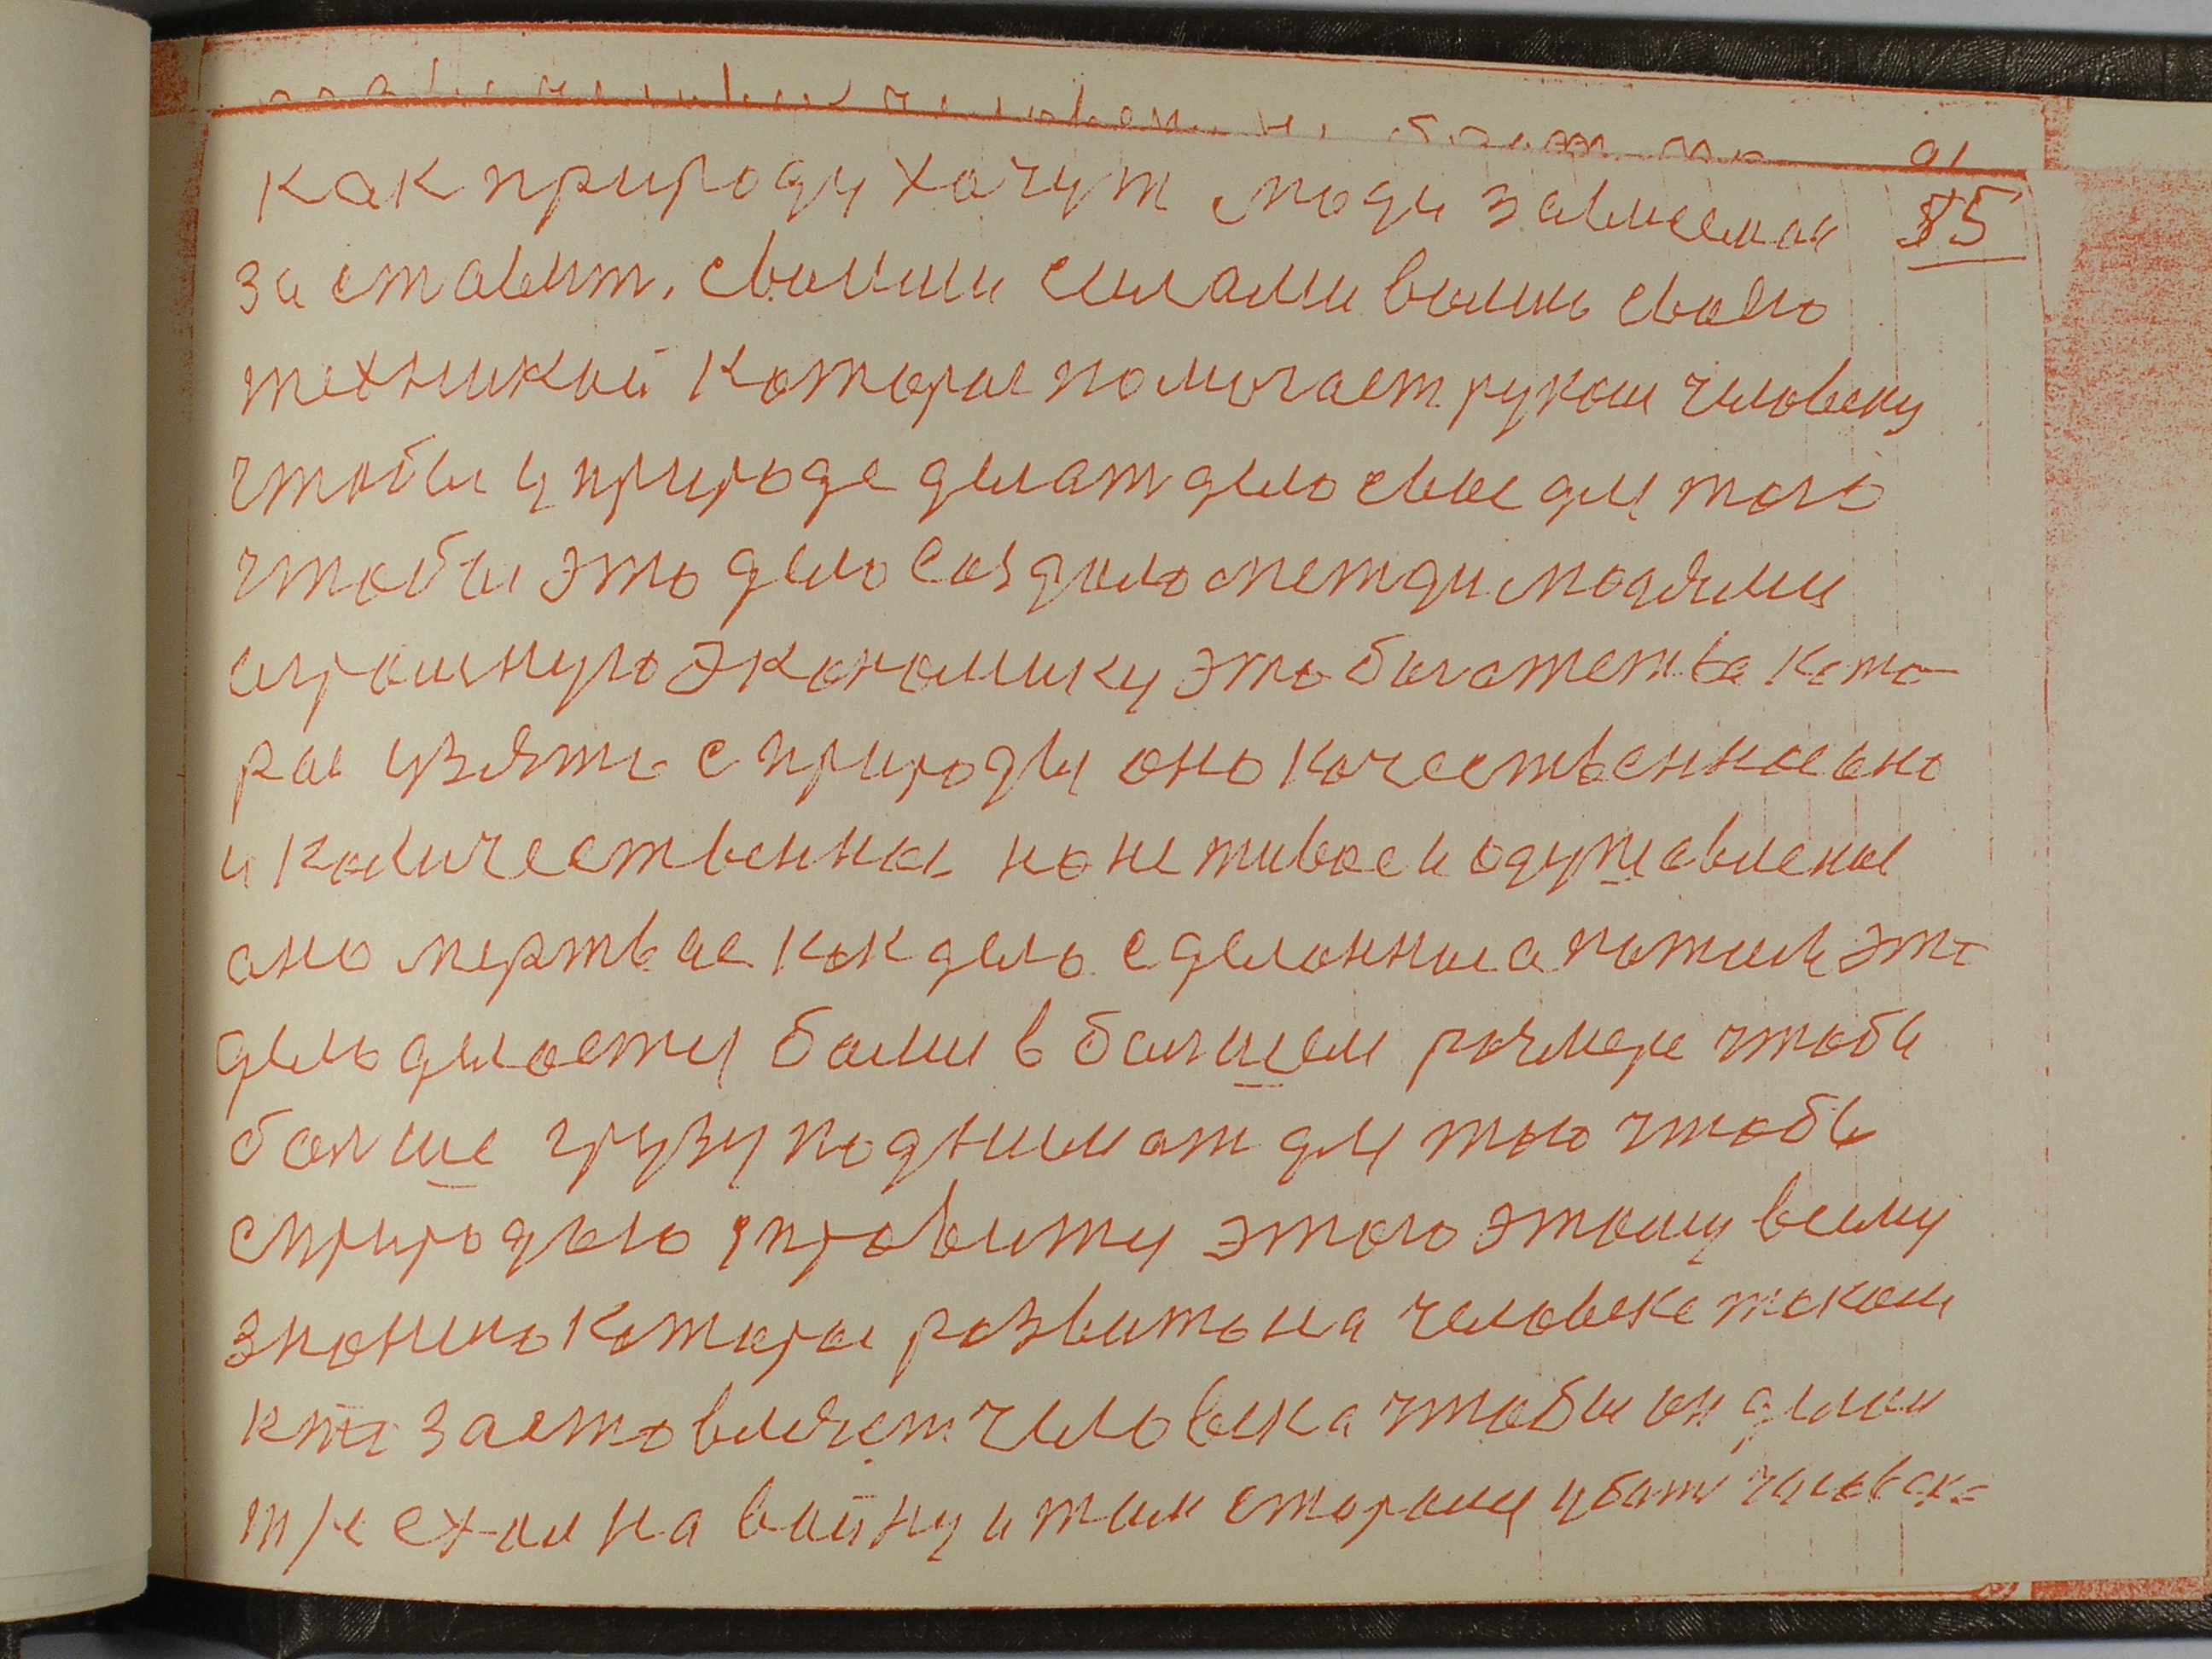 91
85
как природу хочут люди
заставит, своими силами своею
техникой которые помогает рукам человеку
чтобы у природе делат дело свое для того
чтобы это дело создало межди людями
огромную экономику это богатетва кото-
рое узять с природы оно качественное оно
и количественное но не живое и одушевленое
оно мертвае как дело сделанное а потом это
дело делаетця бами в болшем размере чтобы
болше грузу поднимат для того чтобы
с природою управитця этого этому всему
знанию которое развито на человеке таком
кто заставляет человека чтобы он делал
ехал на войну и там стороны убат человек=